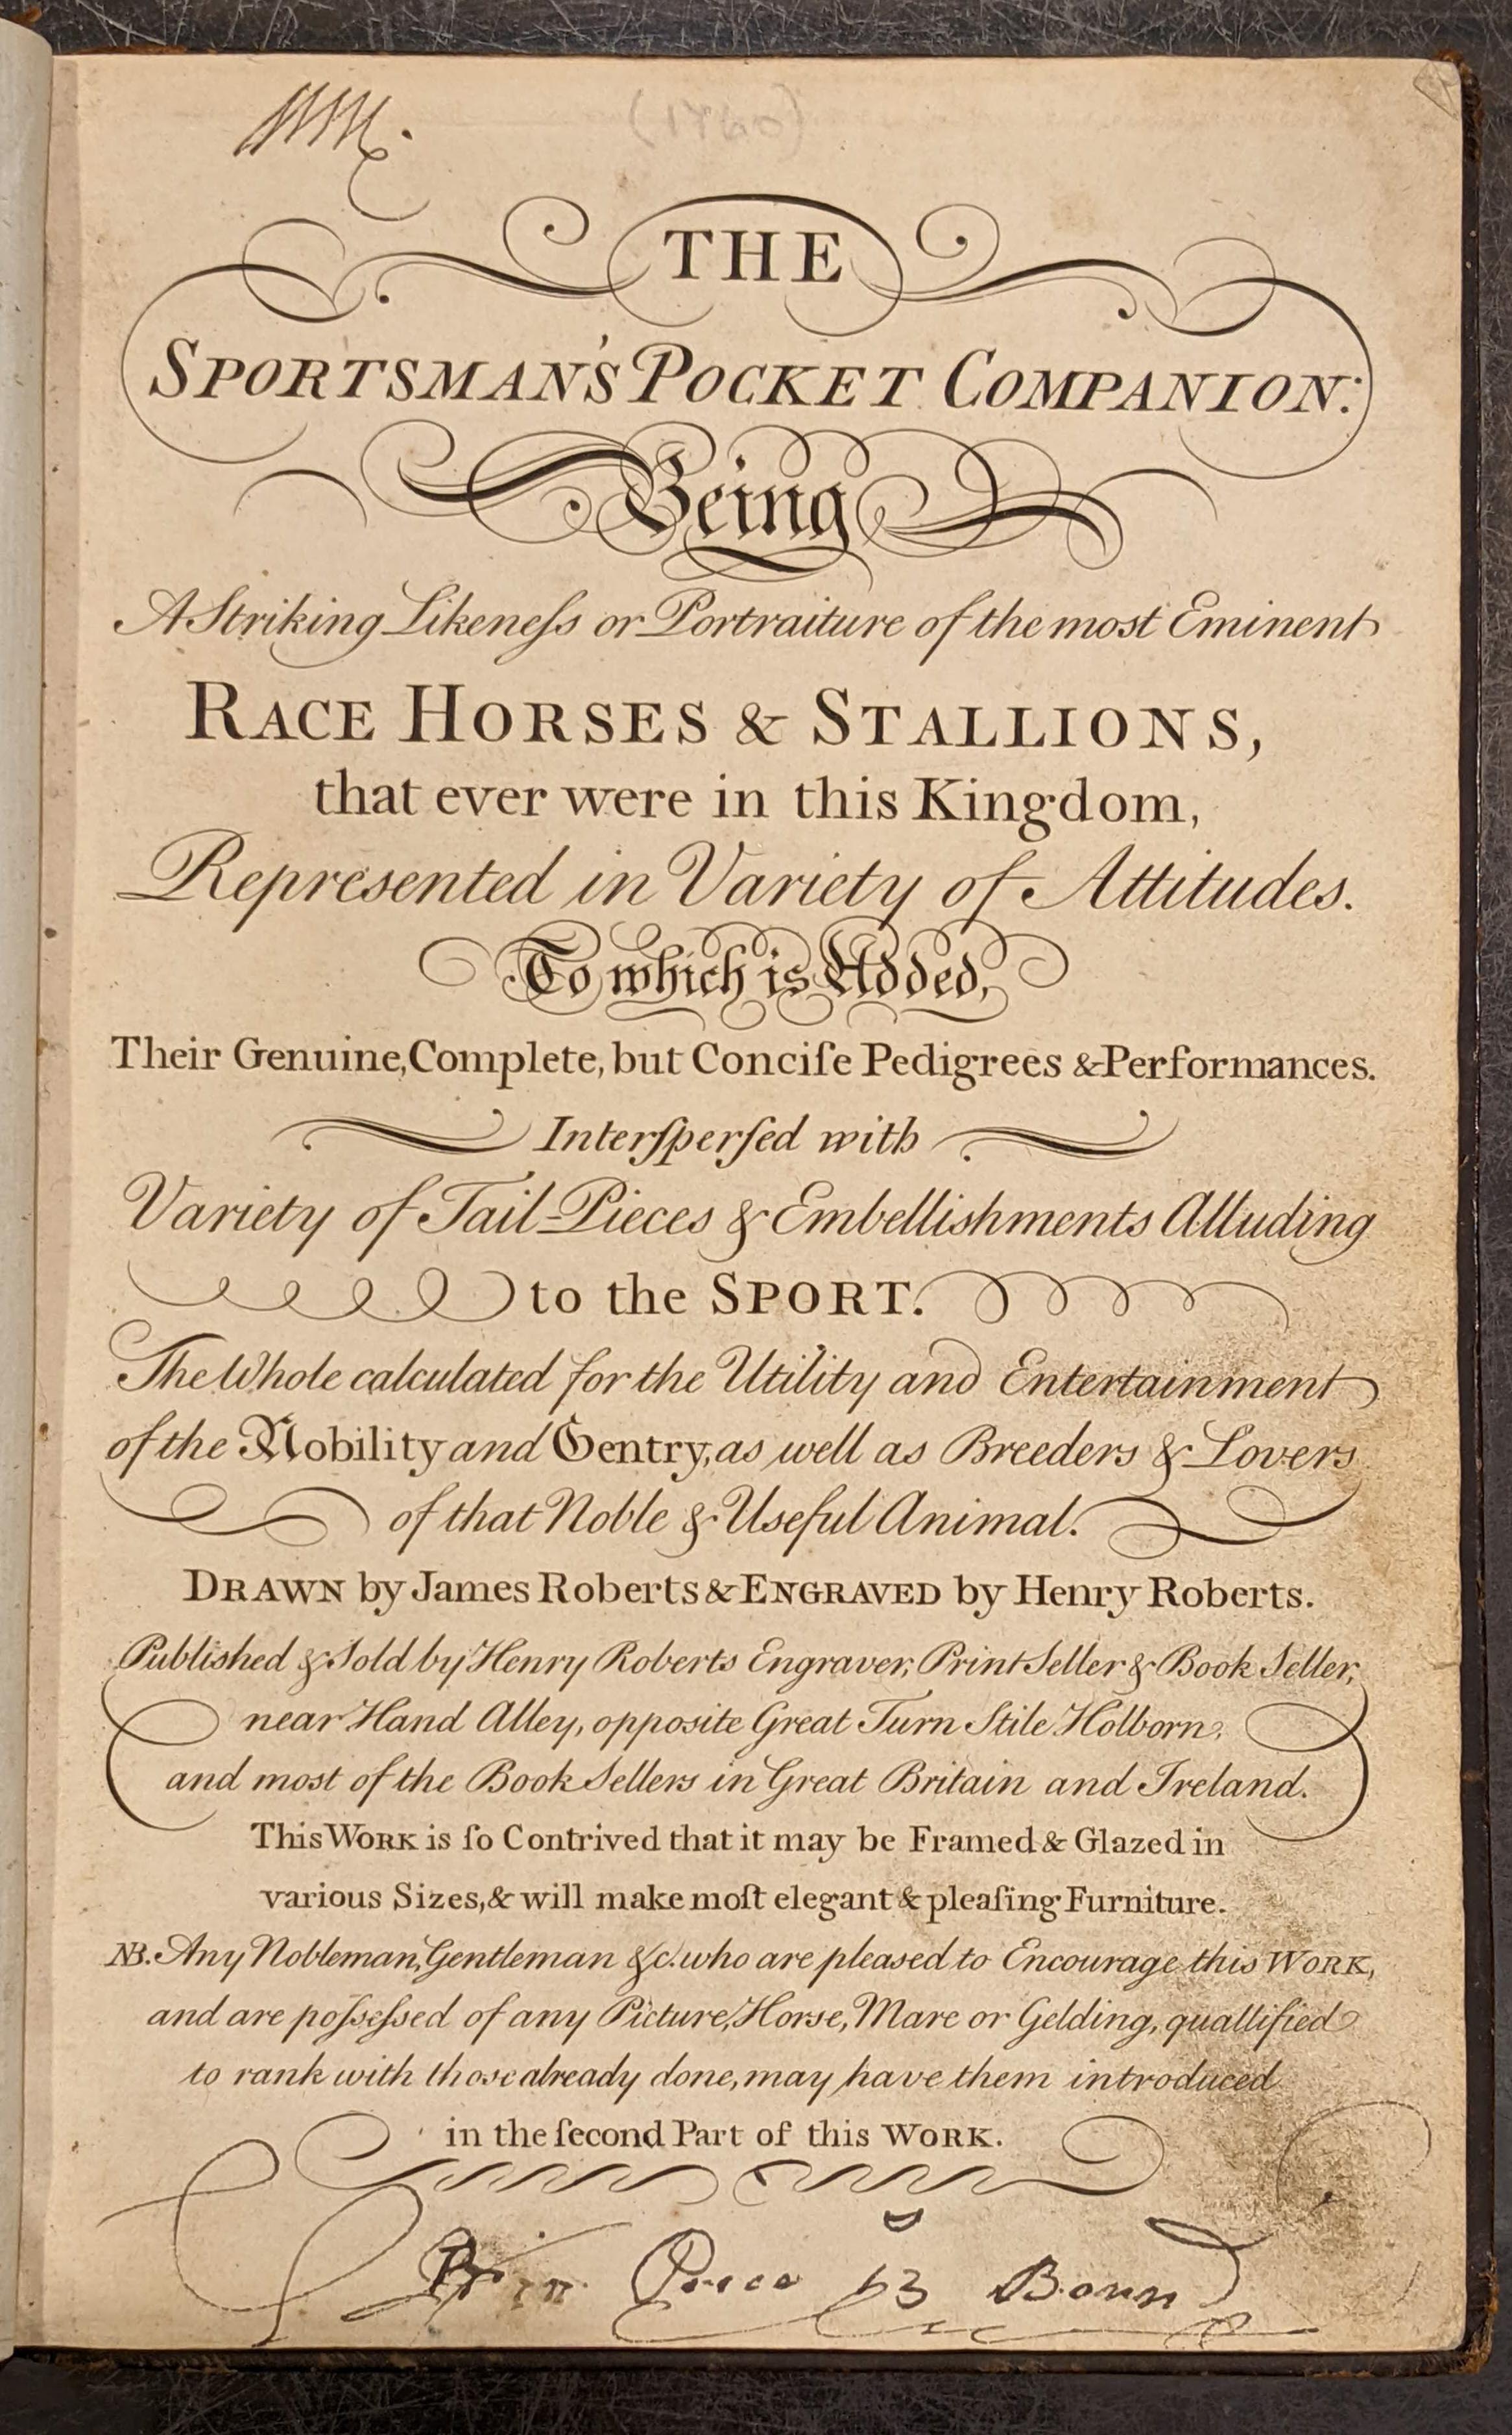 (1760)
THE
SPORTSMAN'S POCKET COMPANION:
Being
A Striking Likeneſs or Portraiture of the most Eminent
RACE HORSES & STALLIONS,
that ever were in this Kingdom,
Represented in Variety of Attitudes.
To which is Added,
Their Genuine, Complete, but Conciſe Pedigrees & Performances.
Interſperſed with
Variety of Tail-Pieces & Embellishments Alluding
to the SPORT.
The Whole calculated for the Utility and Entertainment
of the Nobility and Gentry, as well as Breeders & Lovers
of that Noble & Useful Animal.
DRAWN by James Roberts & ENGRAVED by Henry Roberts.
Published & Sold by Henry Roberts Engraver, Print Seller & Book Seller,
near Hand Alley, opposite Great Turn Stile Holborn,
and most of the Book Sellers in Great Britain and Ireland.
This WORK is ſo Contrived that it may be Framed & Glazed in
various Sizes, & will make moſt elegant & pleaſing Furniture.
NB. Any Nobleman, Gentleman &c. who are pleased to Encourage this WORK,
and are poſseſsed of any Picture, Horse, Mare or Gelding, quallified
to rank with those already done, may have them introduced
in the ſecond Part of this WORK.
Price Boun